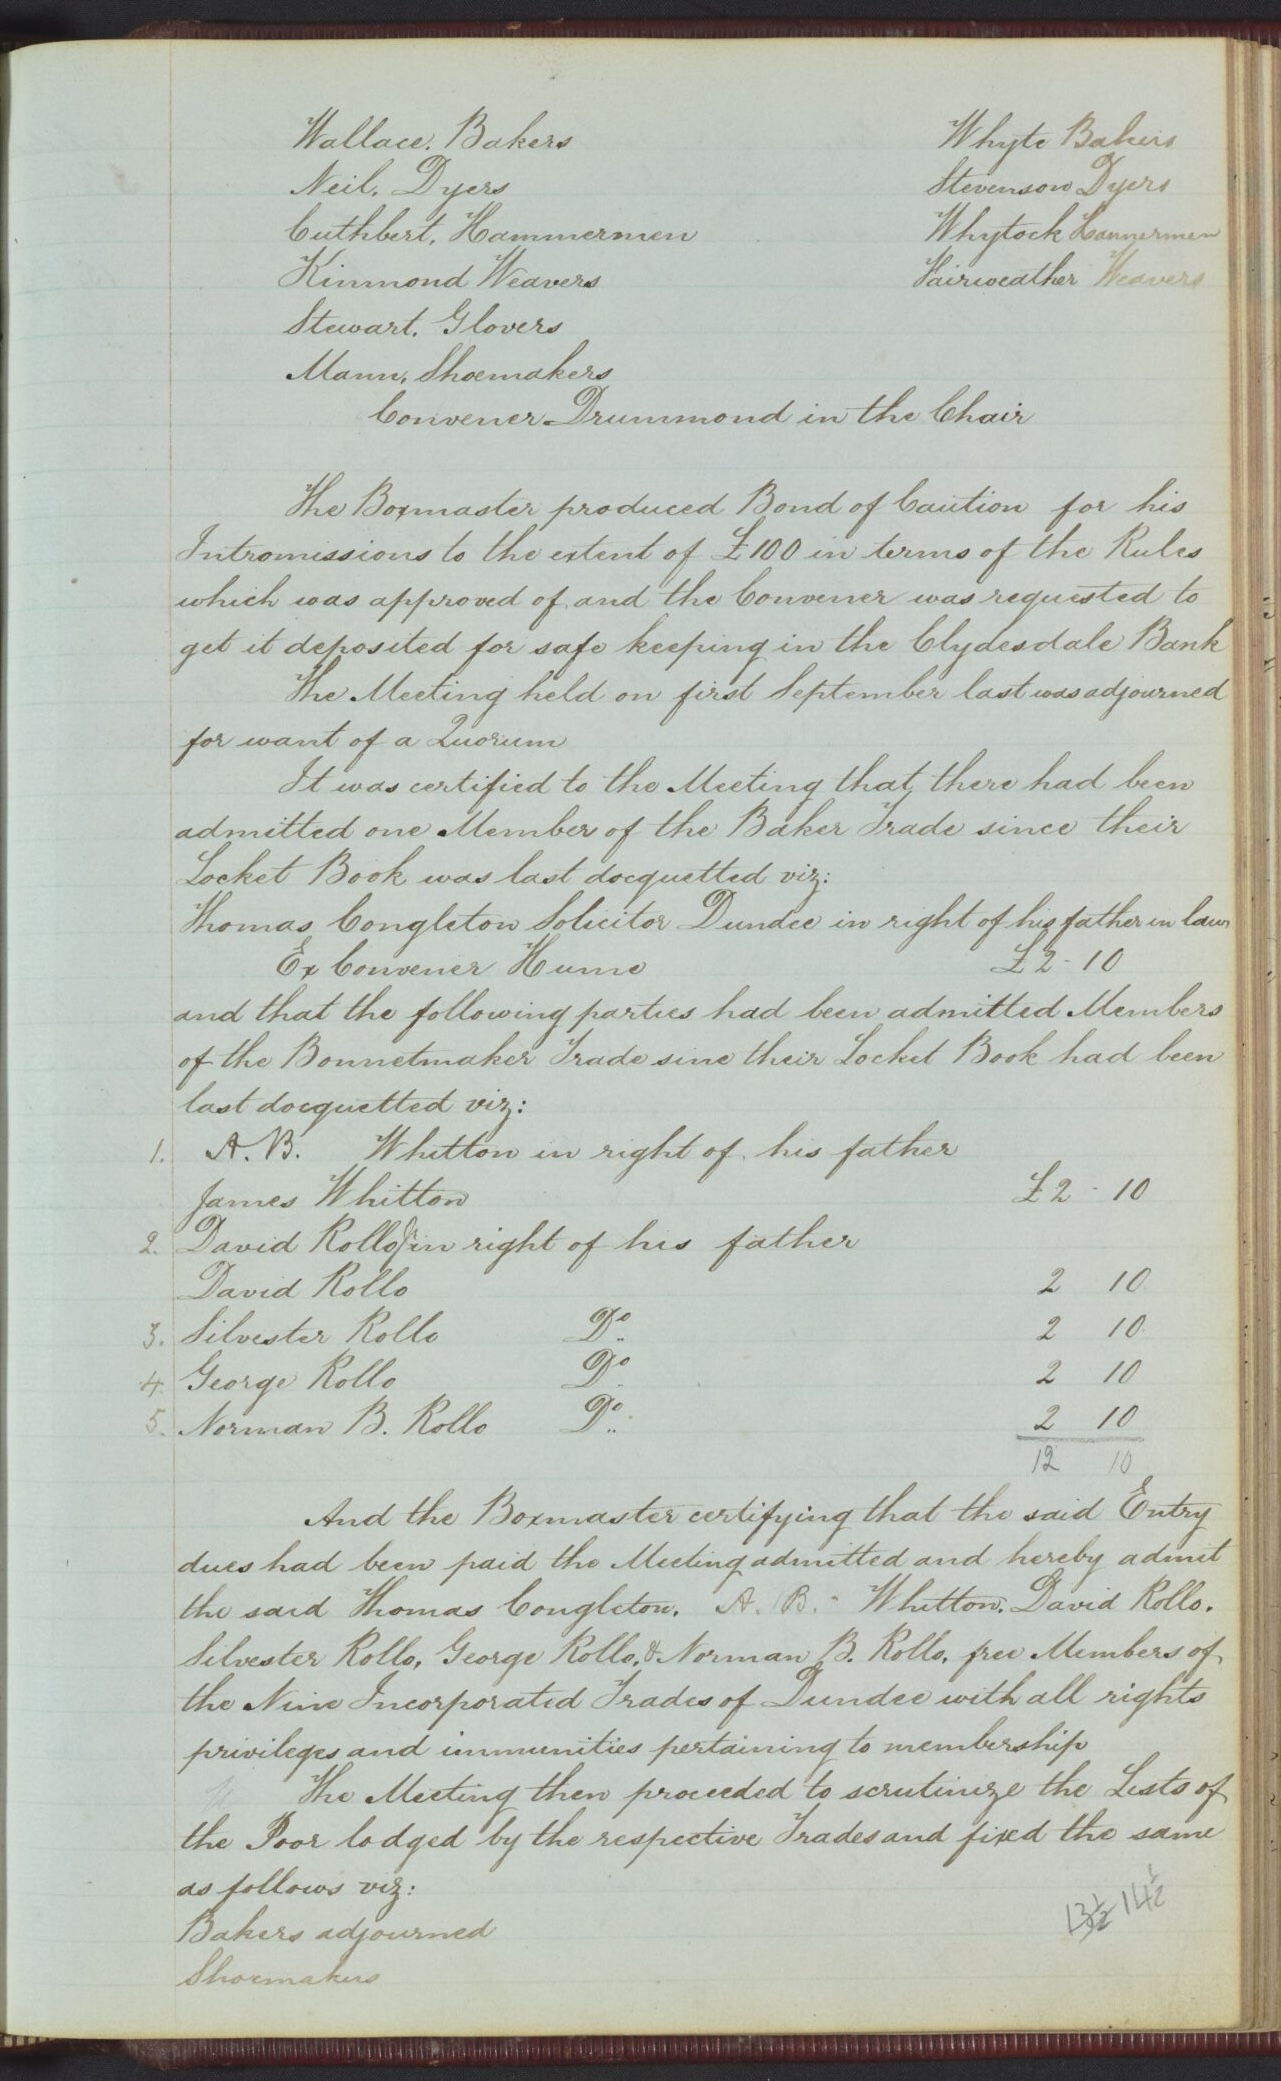 Wallace. Bakers Whyte Bakers
Neil. Dyers Stevenson Dyers
Cuthbert, Hammermen Whytock Hammermen
Kinmond Weavers Fairweather Weavers
Stewart. Glovers
Mann, Shoemakers
Convener Drummond in the Chair
The Boxmaster produced Bond of Caution for his
Intromissions to the extent of £100 in terms of the Rules
which was approved of and the Convener was requested to
get it deposited for safe keeping in the Clydesdale Bank
The Meeting held on first September last was adjourned
for want of a Quorum
It was certified to the Meeting that there had been
admitted one Member of the Baker Trade since their
Locket Book was last docquetted viz:
Thomas Congleton Solicitor Dundee in right of his father in law
Ex Convener Hume £2-10
and that the following parties had been admitted Members
of the Bonnetmaker Trade sine their Locket Book had been
last docquetted viz:
1. A. B. Whitton in right of his father
James Whitton £2-10
2. David Rollo Jr in right of his father
David Rollo 2 10
3. Silvester Rollo Do 2 10
4. George Rollo Do 2 10
5. Norman B. Rollo Do 2 10
12 10
And the Boxmaster certifying that the said Entry
dues had been paid the Meeting admitted and hereby admit
the said Thomas Congleton. A. B. Whitton. David Rollo.
Silvester Rollo, George Rollo, & Norman B. Rollo, free Members of
the Nine Incorporated Trades of Dundee with all rights
privileges and immunities pertaining to membership
The Meeting then proceeded to scrutinize the Lists of
the Poor lodged by the respective Trades and fixed the same
as follows viz:
13½ 14½
Bakers adjourned
Shoemakers